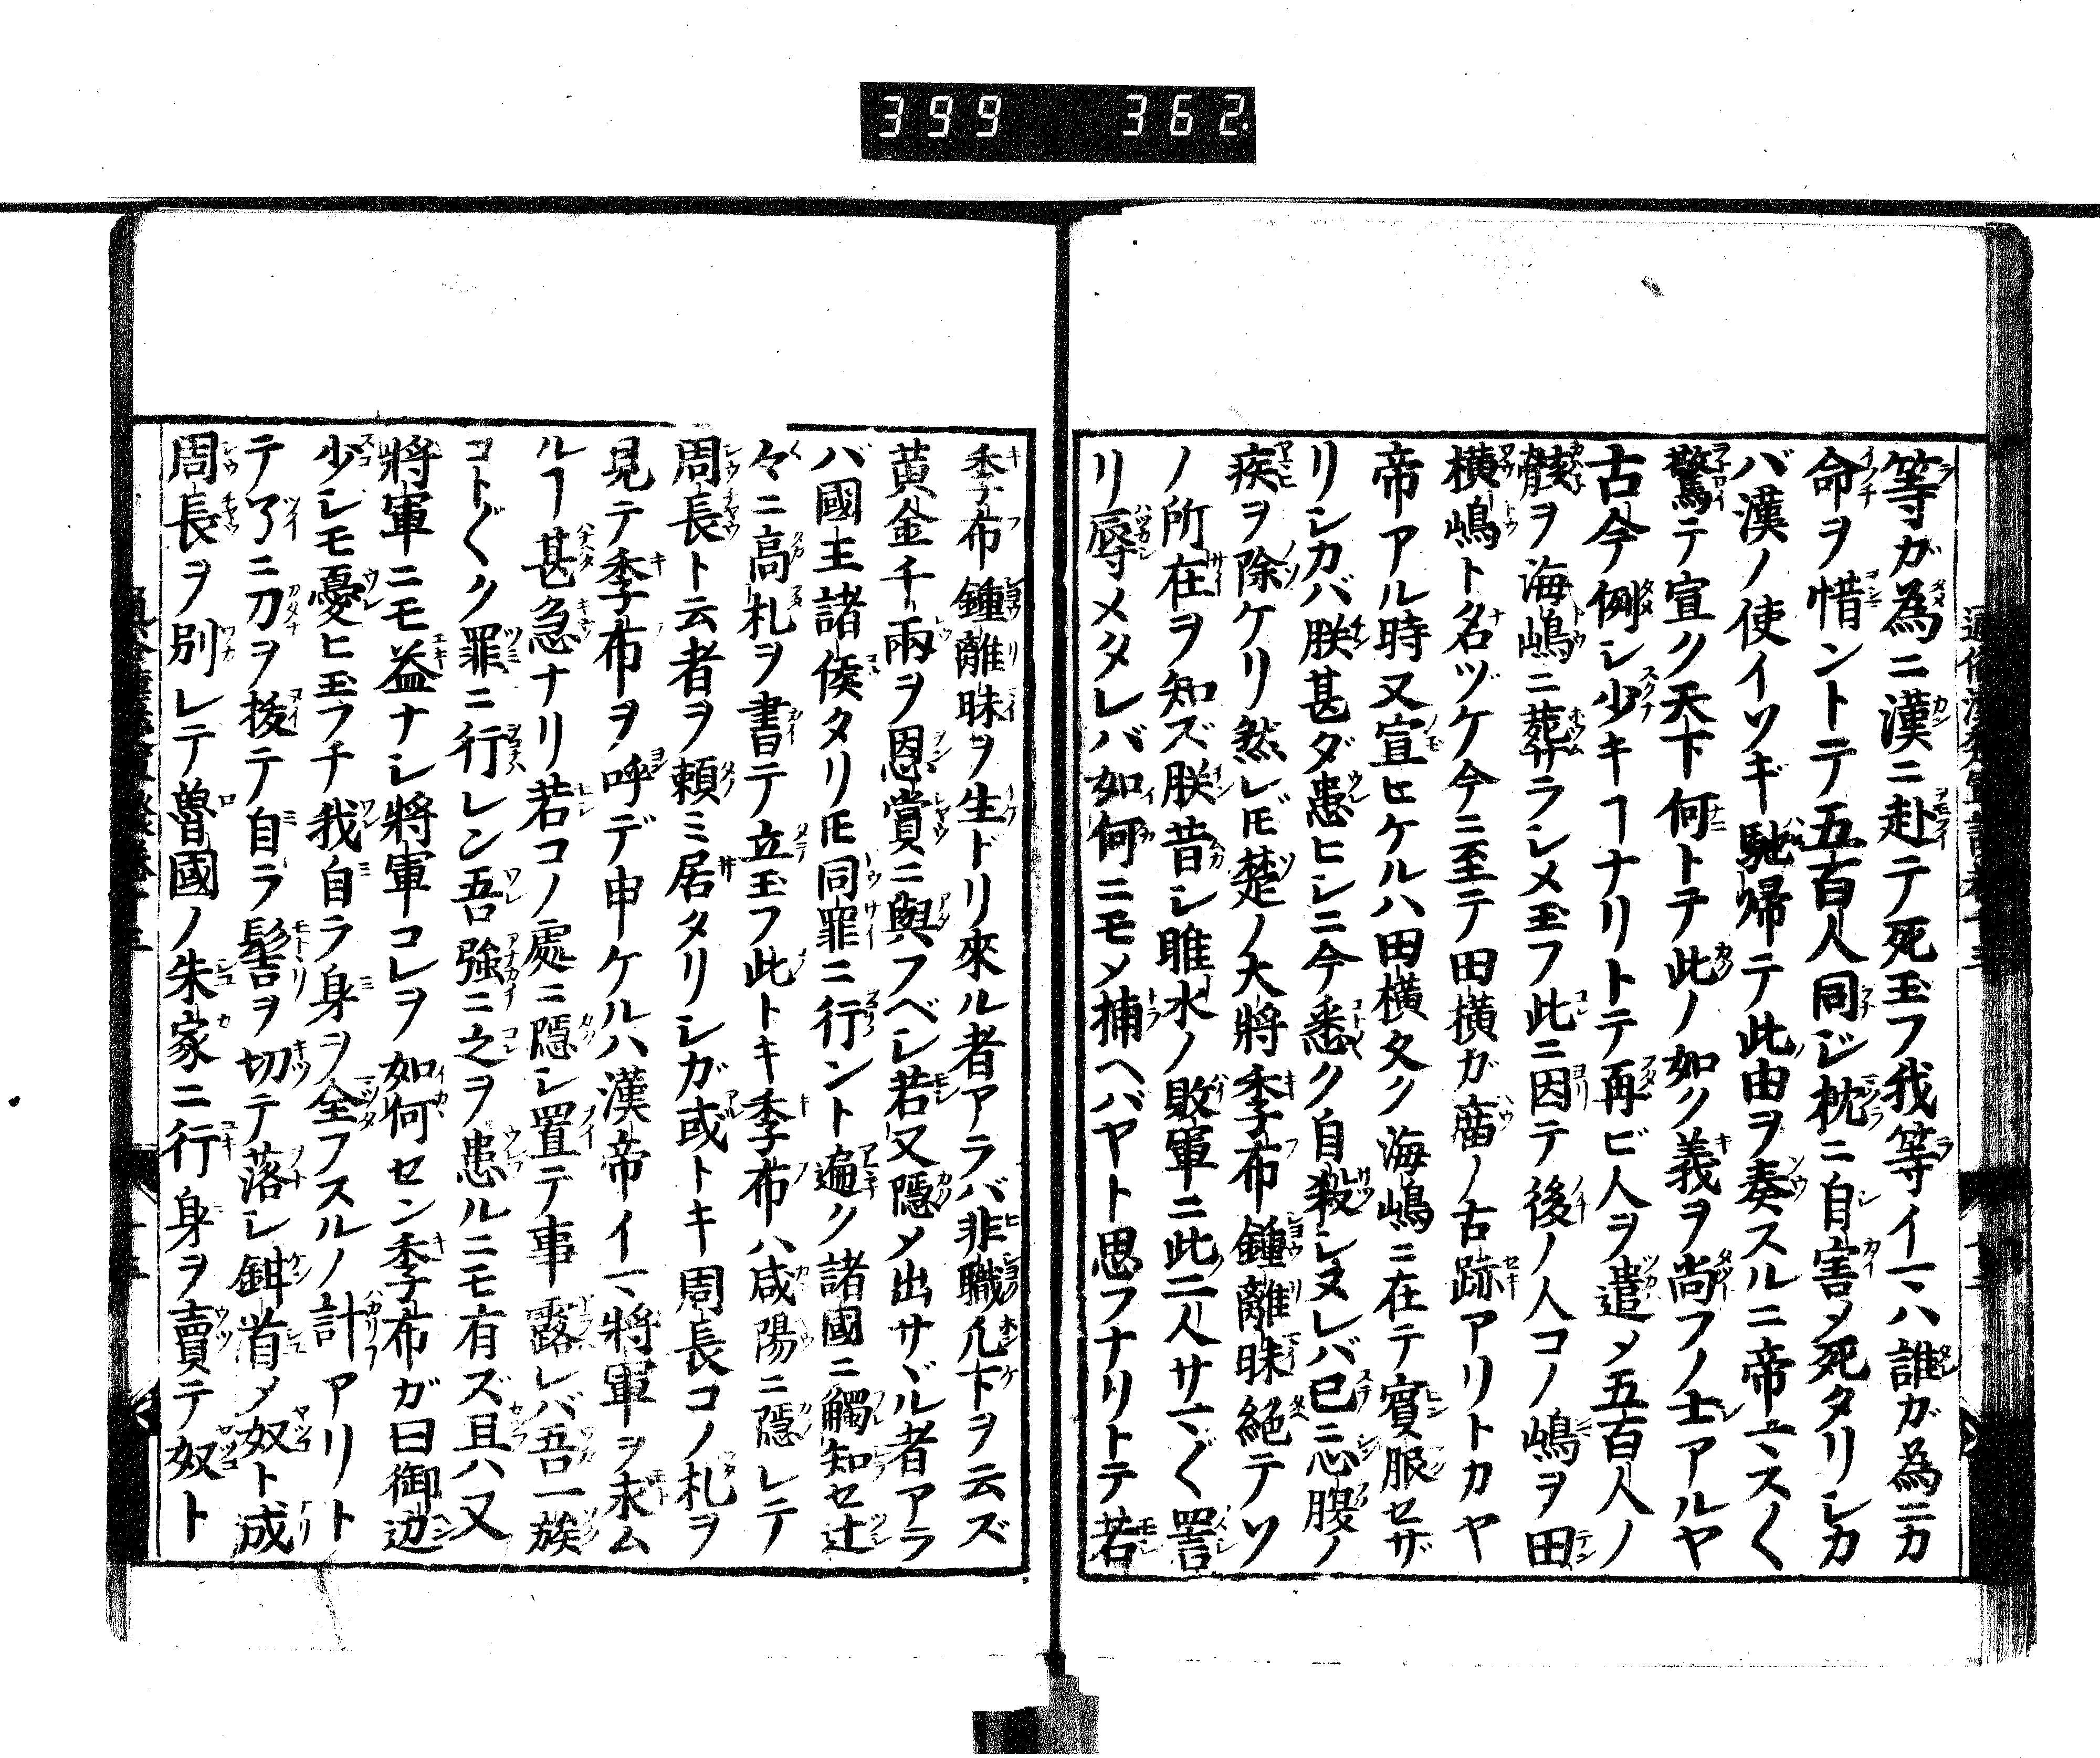 399 362.
等ガ為ニ漢ニ赴テ死玉フ我等イマハ誰ガ為ニカ
命ヲ惜ントテ五百人同ジ枕ニ自害メ死タリシカ
バ漢ノ使イソギ馳帰テ此由ヲ奏スルニ帝マスく
驚テ宣ク天下何トテ此ノ如ク義ヲ尚フノ士アルヤ
古今例シ少キヿナリトテ再ビ人ヲ遣メ五百人ノ
骸ヲ海嶋ニ葬ラシメ玉フ此ニ因テ後ノ人コノ嶋ヲ田
横嶋ト名ヅケ今ニ至テ田横ガ庿ノ古跡アリトカヤ
帝アル時又宣ヒケルハ田横久ク海嶋ニ在テ賓服セザ
リシカバ朕甚ダ患ヒシニ今悉ク自殺シヌレバ已ニ心腹ノ
疾ヲ除ケリ然レㇺ楚ノ大將季布鍾離昧絶テソ
ノ所在ヲ知ズ朕昔シ睢水ノ敗軍ニ此二人サマぐ罟
リ辱メタレバ如何ニモメ捕ヘバヤト思フナリトテ若
季布鍾離昧ヲ生ドリ來ル者アラバ非職凢下ヲ云ズ
黄金千兩ヲ恩賞ニ與フベシ若又隱メ出サヾル者アラ
バ國王諸侯タリㇺ同罪ニ行ント遍ク諸國ニ觸知セ辻
々ニ高札ヲ書テ立玉フ此トキ季布ハ咸陽ニ隱レテ
周長ト云者ヲ頼ミ居タリシガ或トキ周長コノ札ヲ
見テ季布ヲ呼デ申ケルハ漢帝イマ將軍ヲ求ム
ルヿ甚急ナリ若コノ處ニ隱シ置テ事露レバ吾一族
コトぐク罪ニ行レン吾強ニ之ヲ患ルニモ有ズ且ハ又
將軍ニモ益ナシ將軍コレヲ如何セン季布ガ曰御辺
少シモ憂ヒ玉フナ我自ラ身ヲ全フスルノ計アリト
テ了ニ刀ヲ拔テ自ラ髻ヲ切テ落シ鉗首メ奴ト成
周長ヲ別レテ魯國ノ朱家ニ行身ヲ賣テ奴ト